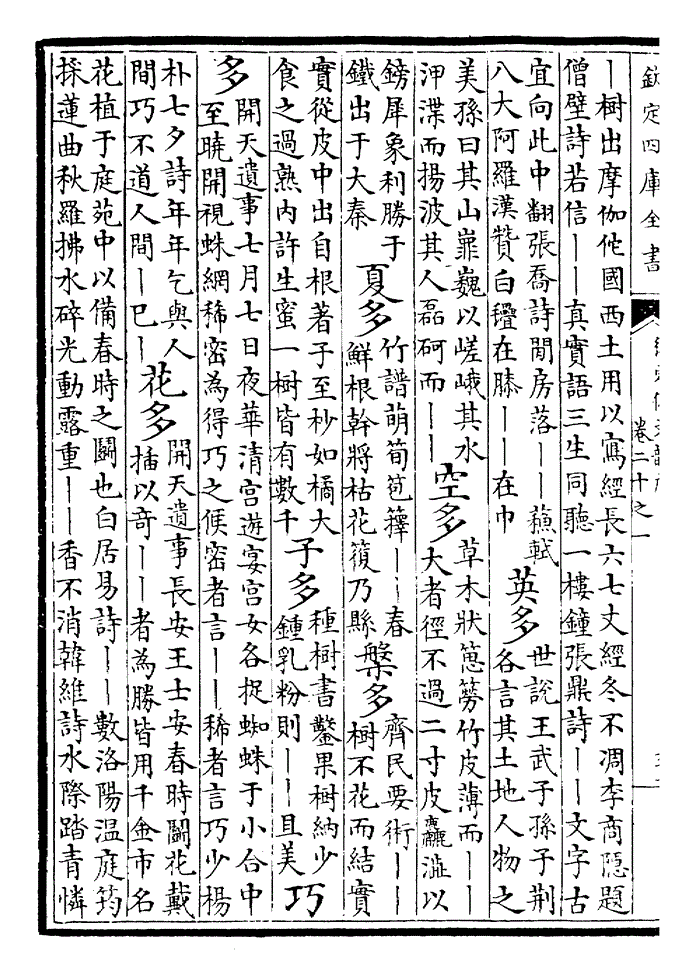 欽定四庫全書
卷二十之一
｜樹出摩伽佗國西土用以寫經長六七丈經冬不凋李商隱題
僧壁詩若信｜｜真實語三生同聽一樓鐘張鼎詩｜｜文字古
宜向此中翻張喬詩閒房落｜｜蘇軾
八大阿羅漢贊白㲲在膝｜｜在巾
英多
世說王武子孫子荆
各言其土地人物之
美孫曰其山嶵巍以嵯峨其水
㳌渫而揚波其人磊砢而｜｜
空多
草木狀箆簩竹皮薄而｜｜
大者徑不過二寸皮麤澁以
鎊犀象利勝于
鐵出于大秦
夏多
竹譜萌筍苞籜｜｜春
鮮根幹將枯花䈏乃縣
槃多
齊民要術｜｜｜
樹不花而結實
實從皮中出自根著子至杪如橘大
食之過熟内許生蜜一樹皆有數千
子多
種樹書鑿果樹納少
鍾乳粉則｜｜且美
巧
多
開天遺事七月七日夜華清宫遊宴宫女各捉蜘蛛于小合中
至曉開視蛛網稀密為得巧之候密者言｜｜稀者言巧少楊
朴七夕詩年年乞與人
間巧不道人間｜已｜
花多
開天遺事長安王士安春時鬭花戴
插以竒｜｜者為勝皆用千金市名
花植于庭苑中以備春時之鬭也白居易詩｜｜數洛陽温庭筠
採蓮曲秋羅拂水碎光動露重｜｜香不消韓維詩水際踏青憐